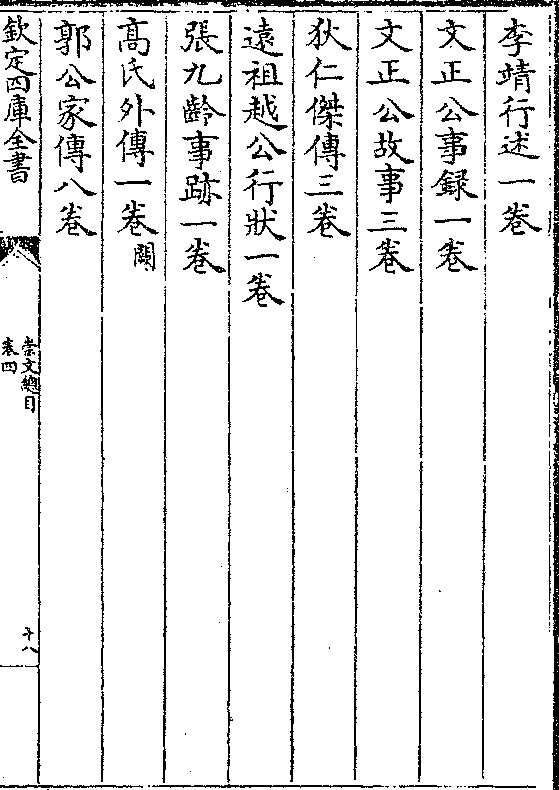 李靖行述一卷
文正公事録一卷
文正公故事三卷
狄仁傑傳三卷
遠祖越公行狀一卷
張九齡事跡一卷
高氏外傳一卷闕
郭公家傳八卷
欽定四庫全書
崇文總目
卷四
十八